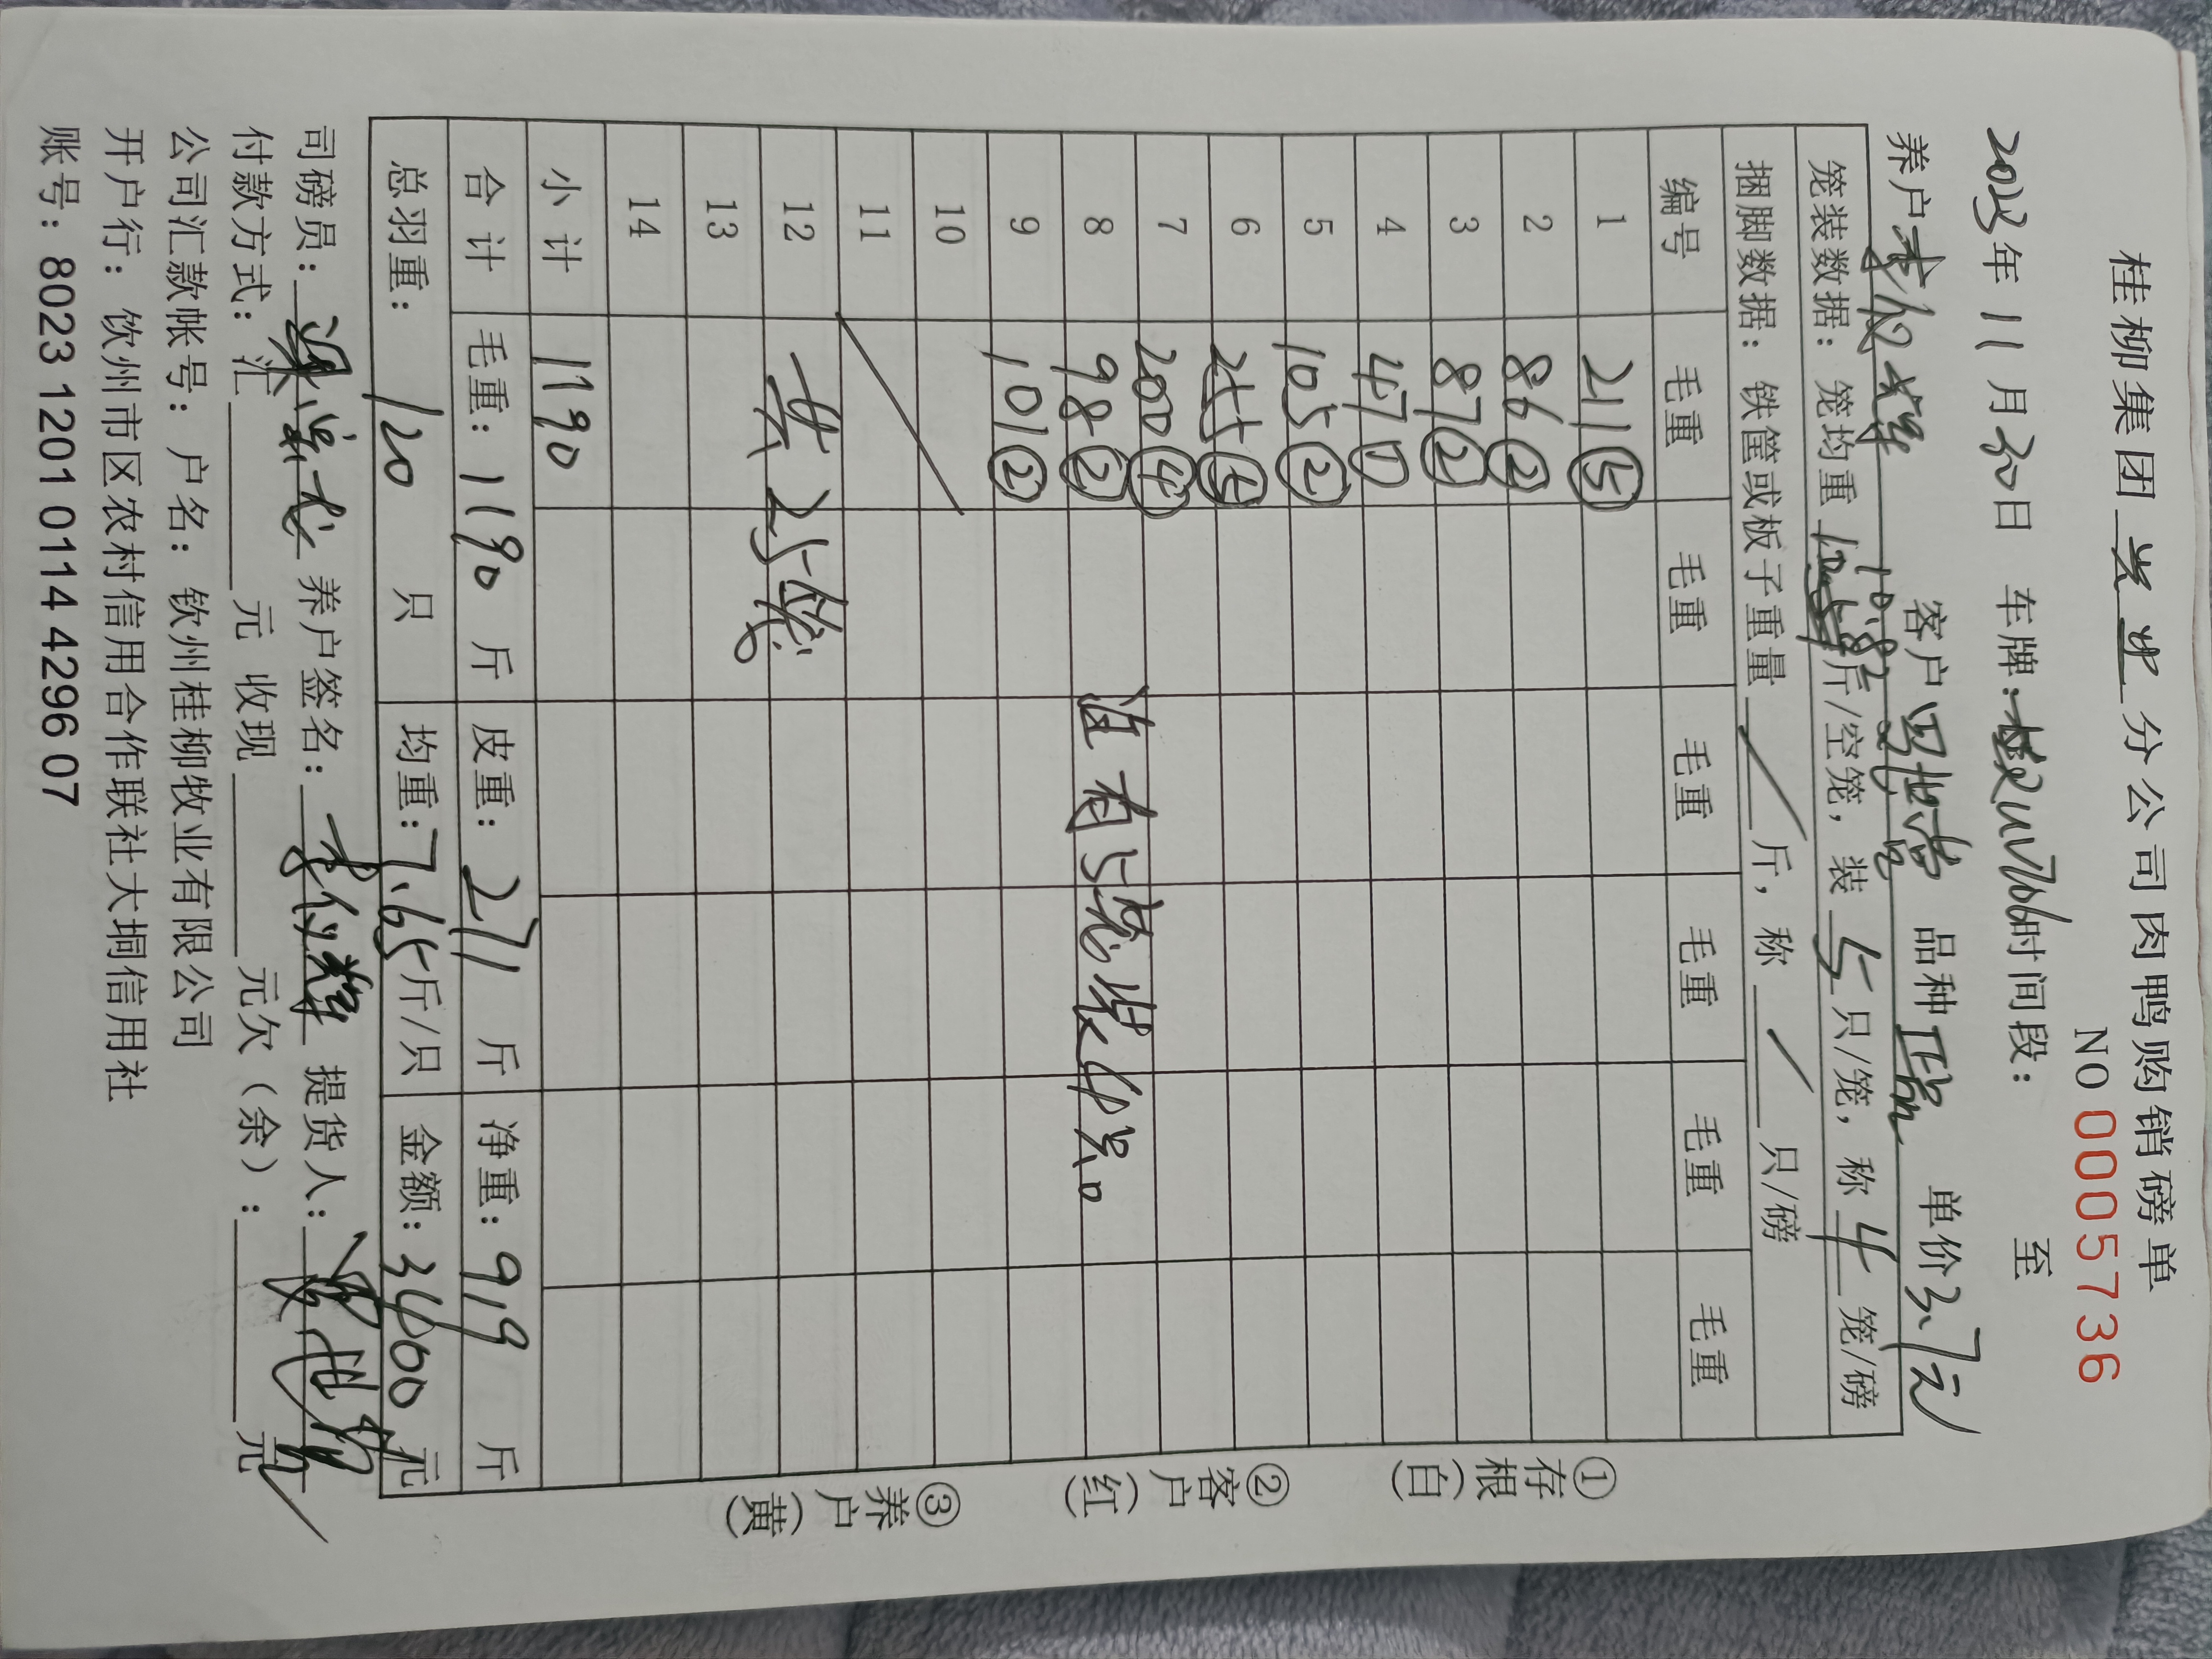 桂柳集团 兴业 分公司肉鸭购销磅单
NO 0005736
2023年11月30日 车牌: 时间段: 至
养户 李仪辉 客户 品种 单价 3.7元
笼装数据: 笼均重 10.8 斤/空笼, 装 5 只/笼, 称 4 笼/磅
捆脚数据: 铁筐或板子重量 / 斤, 称 / 只/磅
编号 毛重 毛重 毛重 毛重 毛重 毛重
1 211 ⑤
2 86 ②
3 87 ②
4 47 ①
5 105 ②
6 255
7 200 ④
8 98 ② 注有5笼装4只。
9 101 ②
10
11
12 共25笼。
13
14
小计 1190
合计 毛重: 1190 斤 皮重: 271 斤 净重: 919 斤
总羽重: 120 只 均重: 7.65 斤/只 金额: 3400 元
司磅员: 养户签名: 李仪辉 提货人:
付款方式: 汇 元 收现 元欠(余): 元
公司汇款帐号: 户名: 钦州桂柳牧业有限公司
开户行: 钦州市区农村信用合作联社大垌信用社
账号: 8023 1201 0114 4296 07
①存根(白) ②客户(红) ③养户(黄)